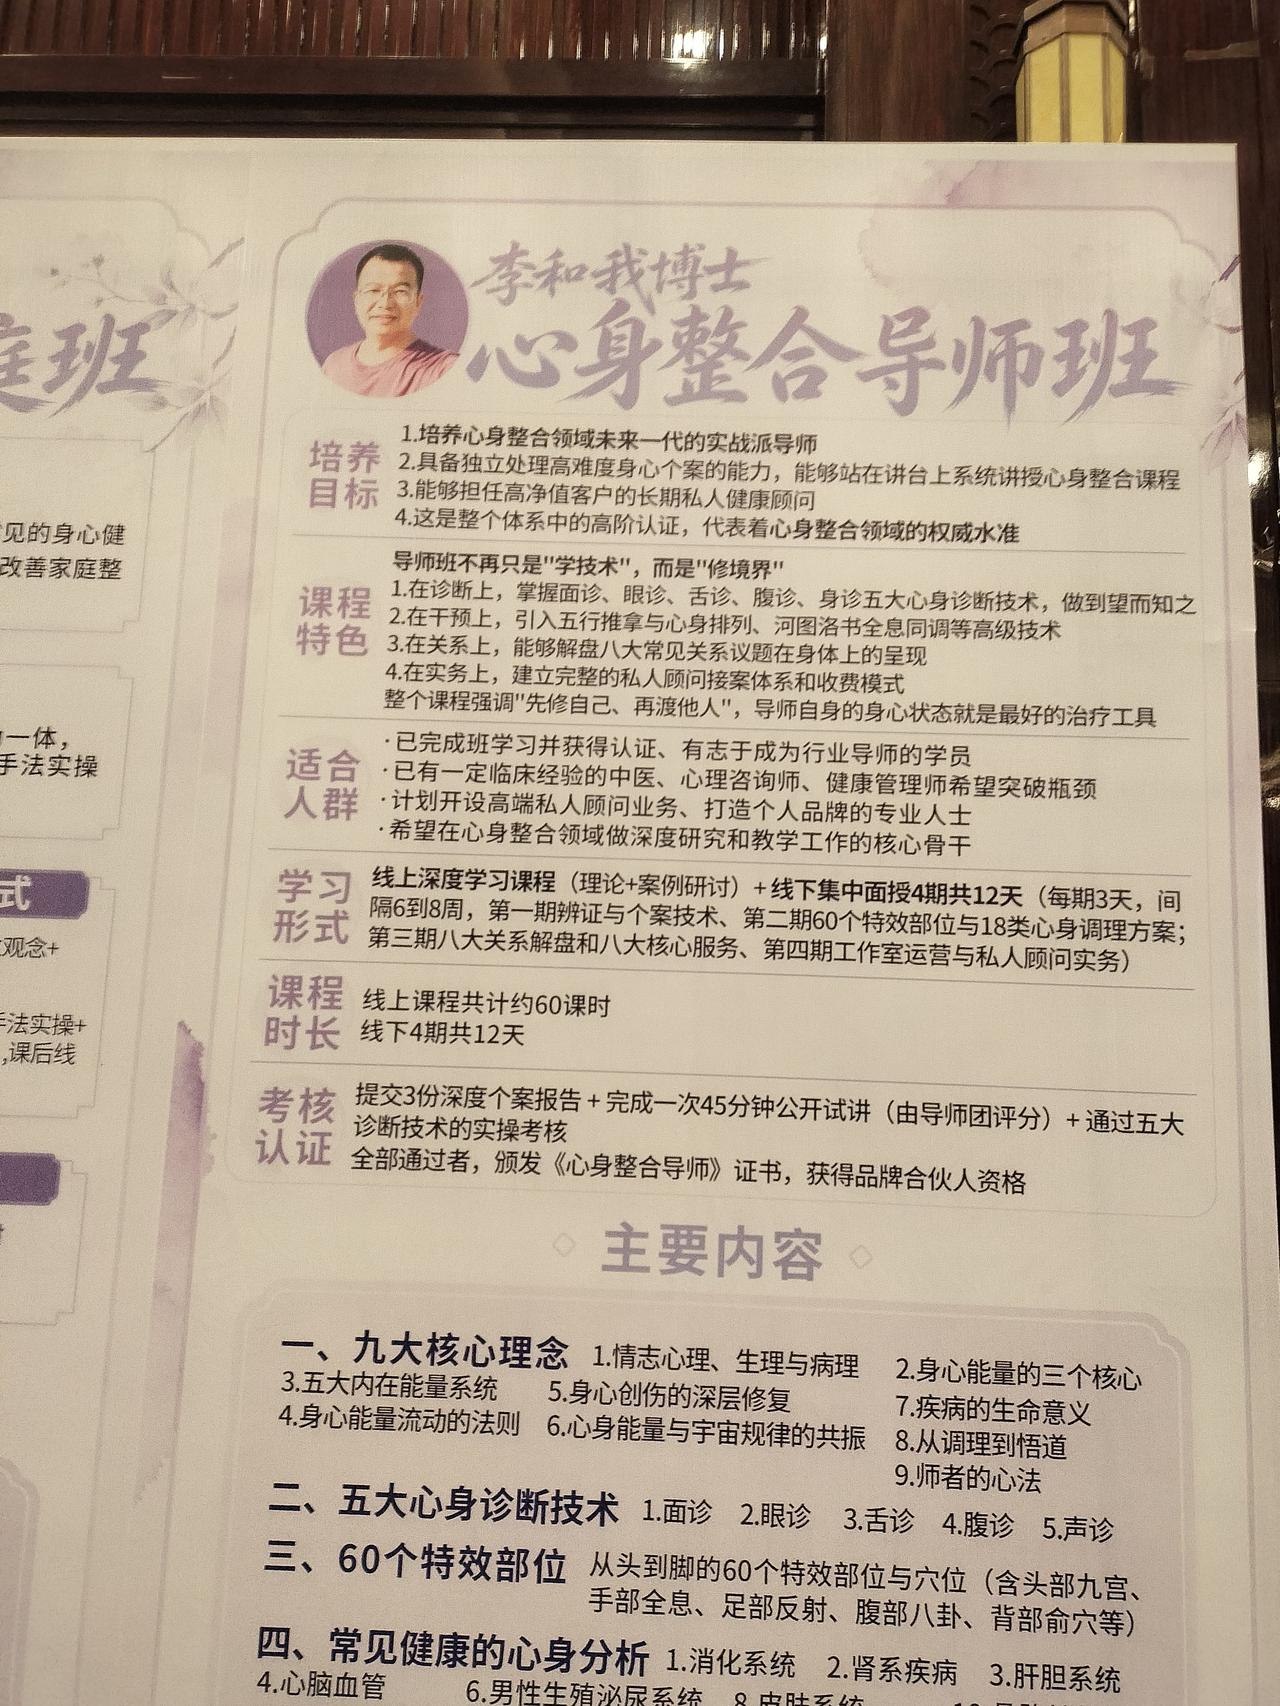 庭班
见的身心健
改善家庭整
一体，
手法实操
式
观念+
手法实操+
,课后线
李和我博士
心身整合导师班
培养
目标
1.培养心身整合领域未来一代的实战派导师
2.具备独立处理高难度身心个案的能力，能够站在讲台上系统讲授心身整合课程
3.能够担任高净值客户的长期私人健康顾问
4.这是整个体系中的高阶认证，代表着心身整合领域的权威水准
课程
特色
导师班不再只是"学技术"，而是"修境界"
1.在诊断上，掌握面诊、眼诊、舌诊、腹诊、身诊五大心身诊断技术，做到望而知之
2.在干预上，引入五行推拿与心身排列、河图洛书全息同调等高级技术
3.在关系上，能够解盘八大常见关系议题在身体上的呈现
4.在实务上，建立完整的私人顾问接案体系和收费模式
整个课程强调"先修自己、再渡他人"，导师自身的身心状态就是最好的治疗工具
适合
人群
·已完成班学习并获得认证、有志于成为行业导师的学员
·已有一定临床经验的中医、心理咨询师、健康管理师希望突破瓶颈
·计划开设高端私人顾问业务、打造个人品牌的专业人士
·希望在心身整合领域做深度研究和教学工作的核心骨干
学习
形式
线上深度学习课程（理论+案例研讨）+线下集中面授4期共12天（每期3天，间
隔6到8周，第一期辨证与个案技术、第二期60个特效部位与18类心身调理方案；
第三期八大关系解盘和八大核心服务、第四期工作室运营与私人顾问实务）
课程
时长
线上课程共计约60课时
线下4期共12天
考核
认证
提交3份深度个案报告 + 完成一次45分钟公开试讲（由导师团评分）+ 通过五大
诊断技术的实操考核
全部通过者，颁发《心身整合导师》证书，获得品牌合伙人资格
主要内容
一、九大核心理念 1.情志心理、生理与病理 2.身心能量的三个核心
3.五大内在能量系统 5.身心创伤的深层修复 7.疾病的生命意义
4.身心能量流动的法则 6.心身能量与宇宙规律的共振 8.从调理到悟道
9.师者的心法
二、五大心身诊断技术 1.面诊 2.眼诊 3.舌诊 4.腹诊 5.声诊
三、60个特效部位 从头到脚的60个特效部位与穴位（含头部九宫、
手部全息、足部反射、腹部八卦、背部俞穴等）
四、常见健康的心身分析 1.消化系统 2.肾系疾病 3.肝胆系统
4.心脑血管 6.男性生殖泌尿系统 8.皮肤系统